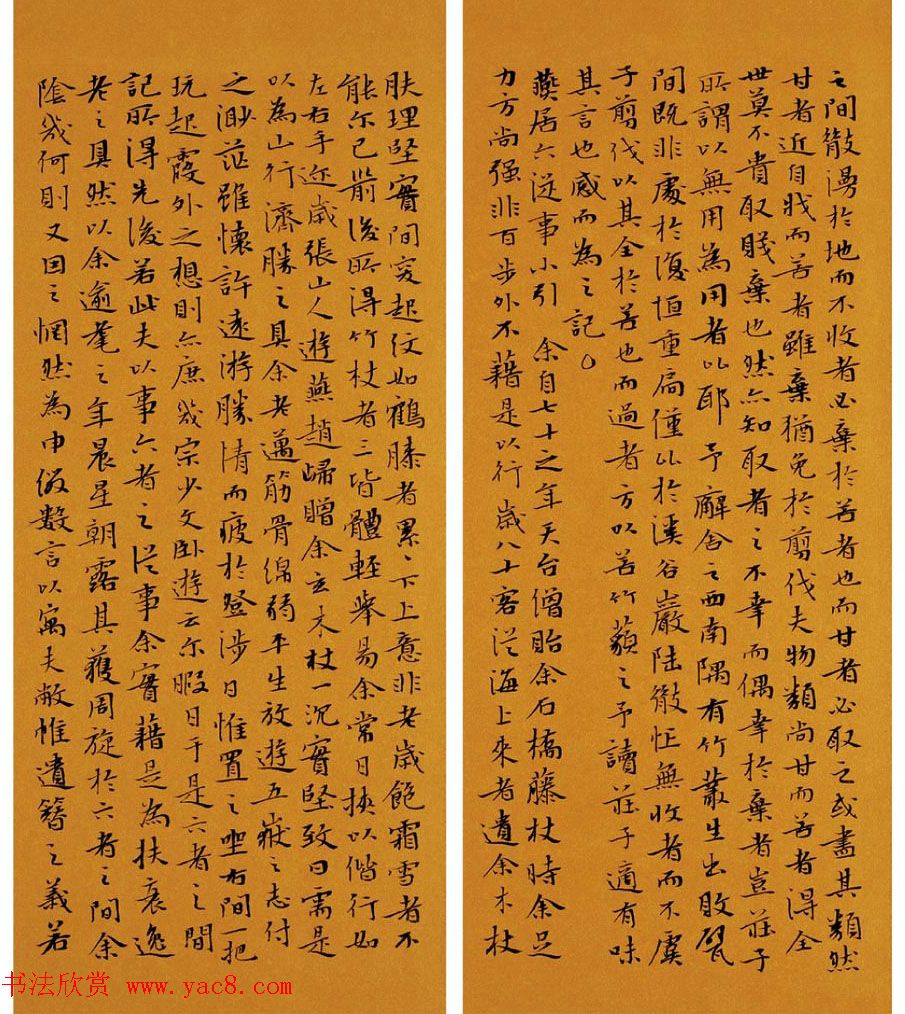 之間散漫於地而不收者必棄於苦者也而甘者必取之或盡其類然
甘者近自戕而苦者雖棄猶免於剪伐夫物類尚甘而苦者得全
世莫不貴取賤棄也然亦知取者之不幸而偶幸於棄者豈莊子
所謂以無用為用者比耶予廨舍之西南隅有竹叢生出敗甓
間既非處於復垣重扃僅比於溪谷巖陸散恆無收者而不虞
子剪伐以其全於苦也而過者方以苦竹藐之予讀莊子適有味
其言也感而為之記
燕居六從事小引 余自七十之年天台僧貽余石橋藤杖時余足
力方尚强非百步外不藉是以行歲八十客從海上來者遺余木杖
肤理堅實間突起纹如鶴膝者累〻下上意非老歲飽霜雪者不
能尔已前後所得竹杖者三皆體輕舉易余常日挟以偕行如
左右手迩歲張山人遊燕趙歸贈余玄木杖一沉實堅致曰需是
以為山行濟勝之具余老邁筋骨绵弱平生放遊五嶽之志付
之渺茫雖懷許遠游勝情而疲於登涉日惟置之㘴右間一把
玩起霞外之想則亦庶幾宗少文卧遊云尔暇日于是六者之間
記所得先後若此夫以事六者之從事余實藉是為扶衰逸
老之具然以余逾耄之年晨星朝露其獲周旋於六者之間余
陰幾何則又因之惘然為申儆數言以寓夫敝帷遺簪之義若
书法欣赏 www.yac8.com